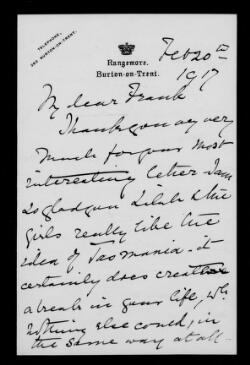 TELEPHONE,
BURTON-ON-TRENT.
Rangemore,
Burton-on-Trent.
Feb 20th
1917
My dear Frank
Thank you very very
much for your most
interesting letter I am
so glad you Lilah & the
girls really like the
idea of Tasmania. it
certainly does create
a break in your life, wh.
nothing else could, in
the same way at all.